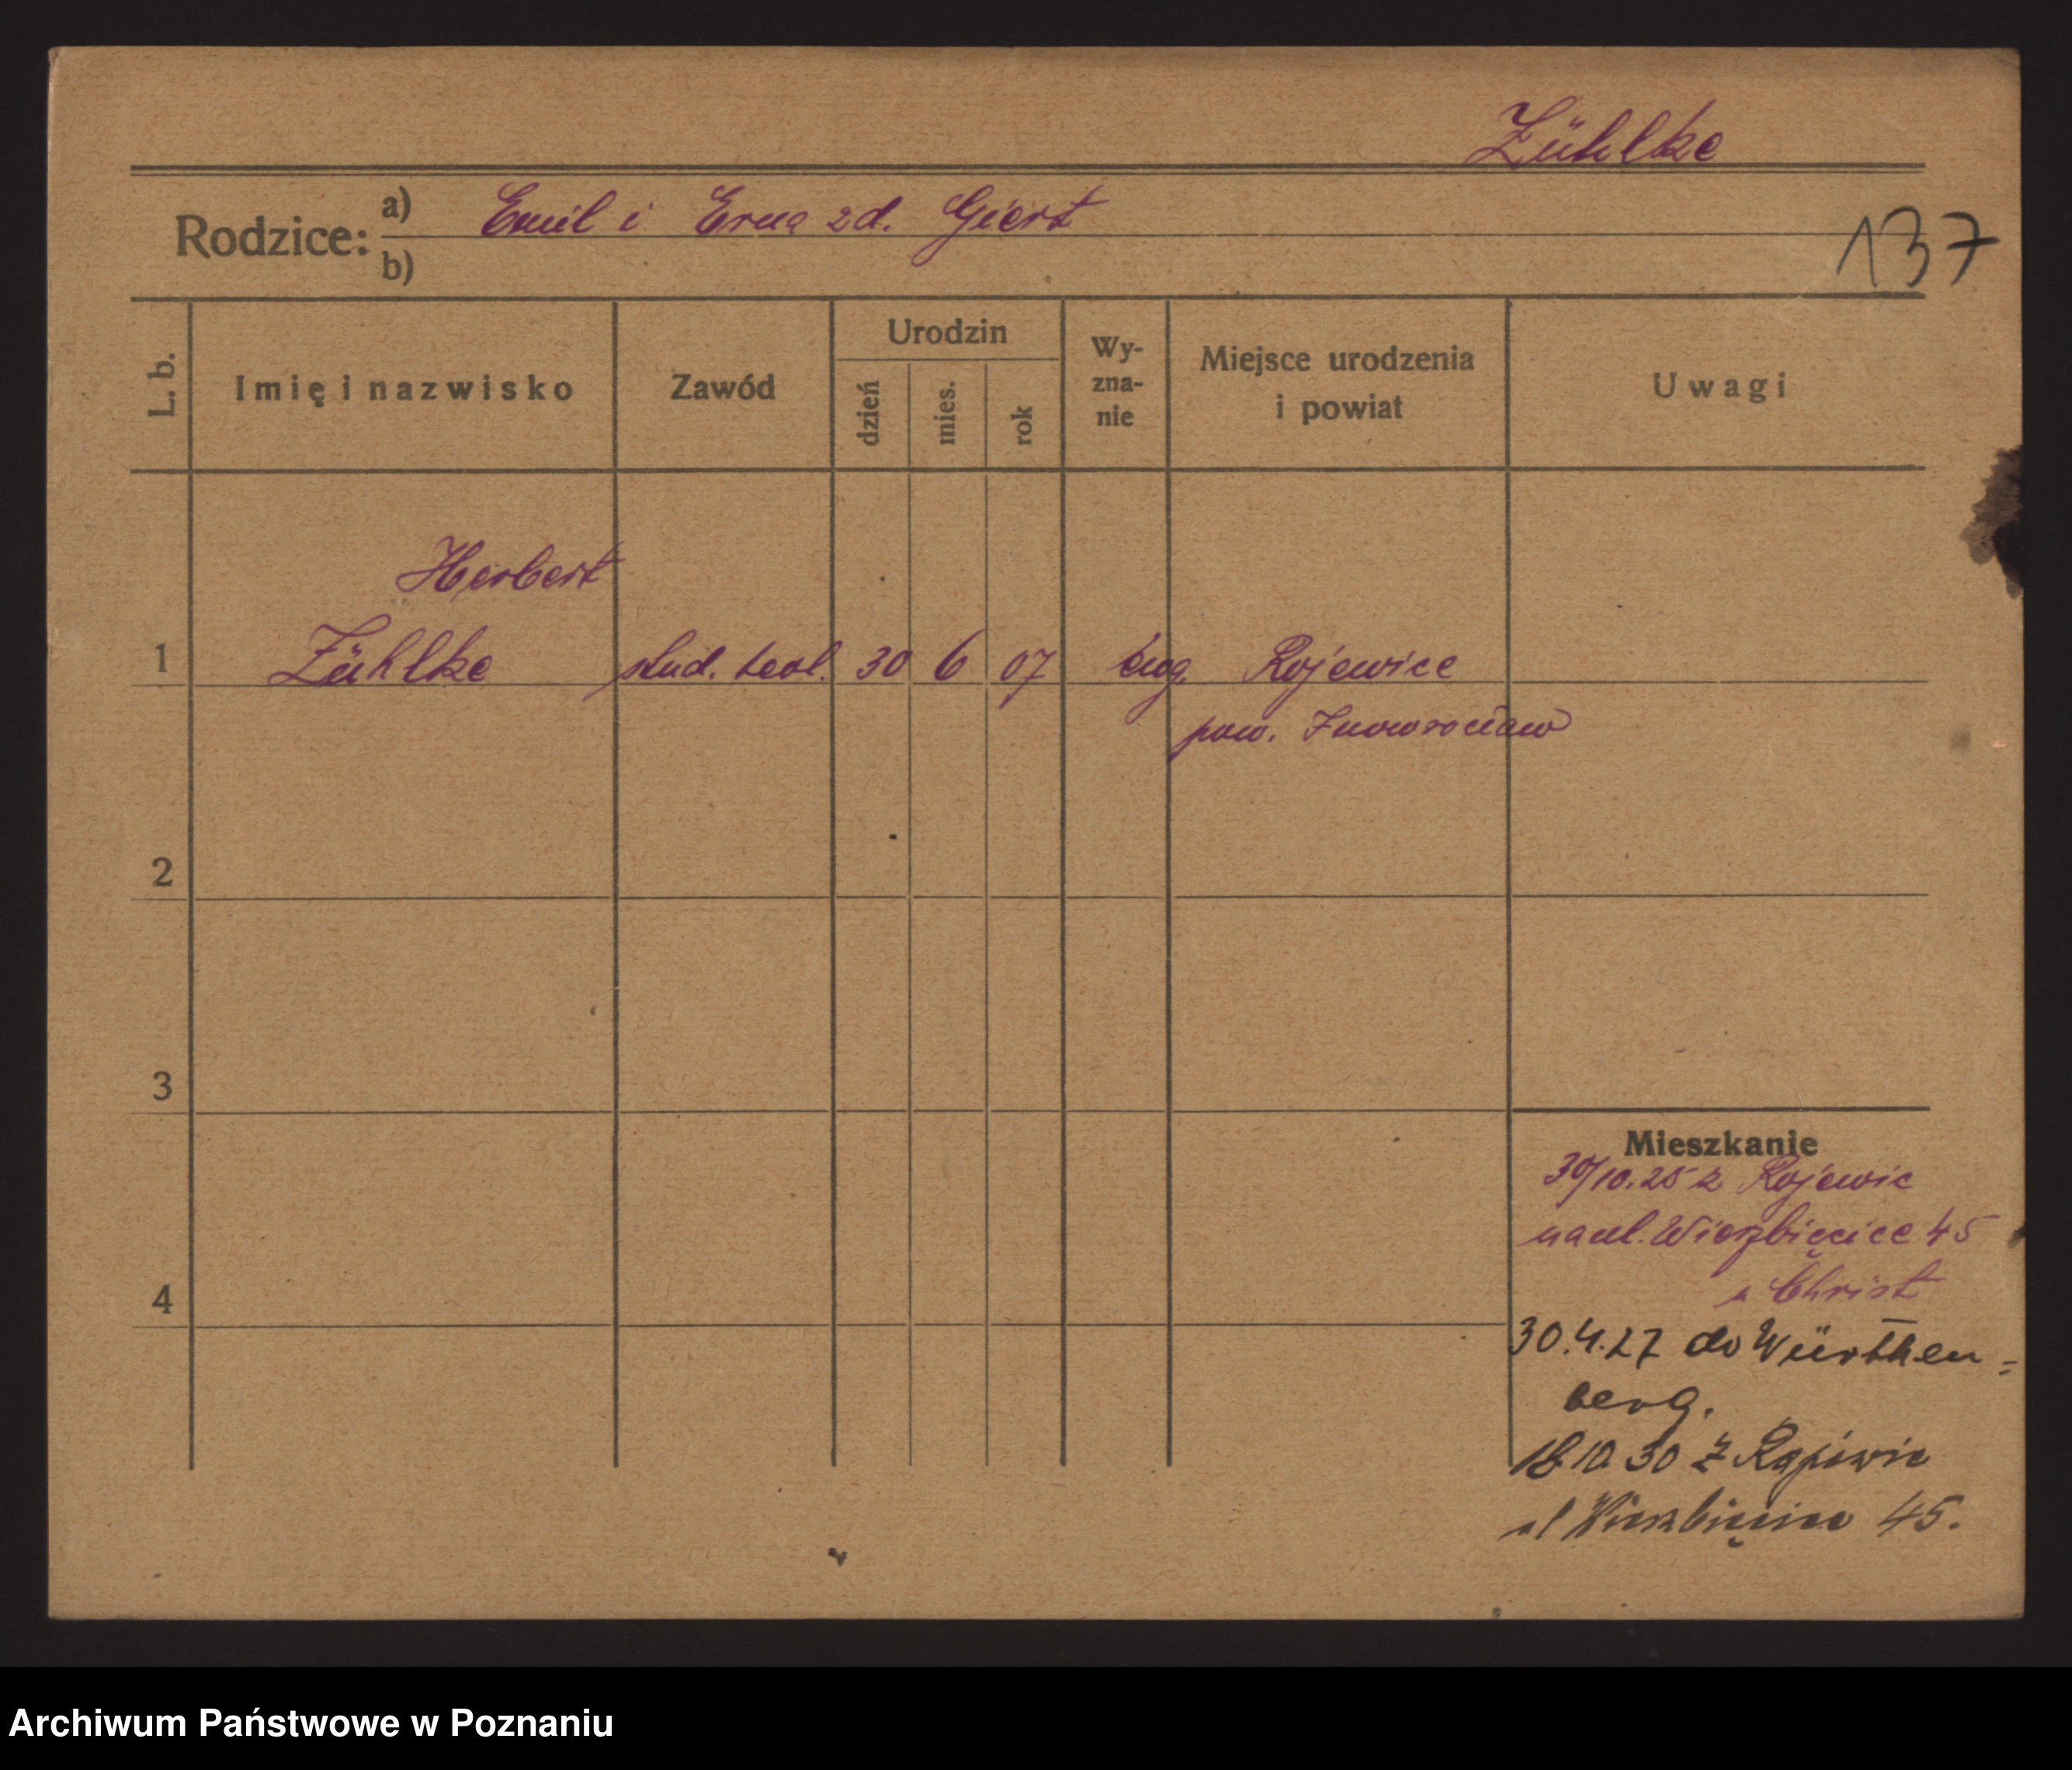 Zühlke
Rodzice: a) Emil i Erna zd. Giert
b)
137
L. b.
Imię i nazwisko
Zawód
Urodzin
dzień
mies.
rok
Wy-
zna-
nie
Miejsce urodzenia
i powiat
Uwagi
Herbert
1 Zühlke stud. teol. 30 6 07 ewg. Rojewice
pow. Inowrocław
2
3
4
Mieszkanie
30/10.25 z Rojewic
na ul. Wierzbięcice 45
u Christ
30.4.27 do Würthen=
berg.
18 10 30 z Rojewic
ul Wierzbięcice 45.
Archiwum Państwowe w Poznaniu